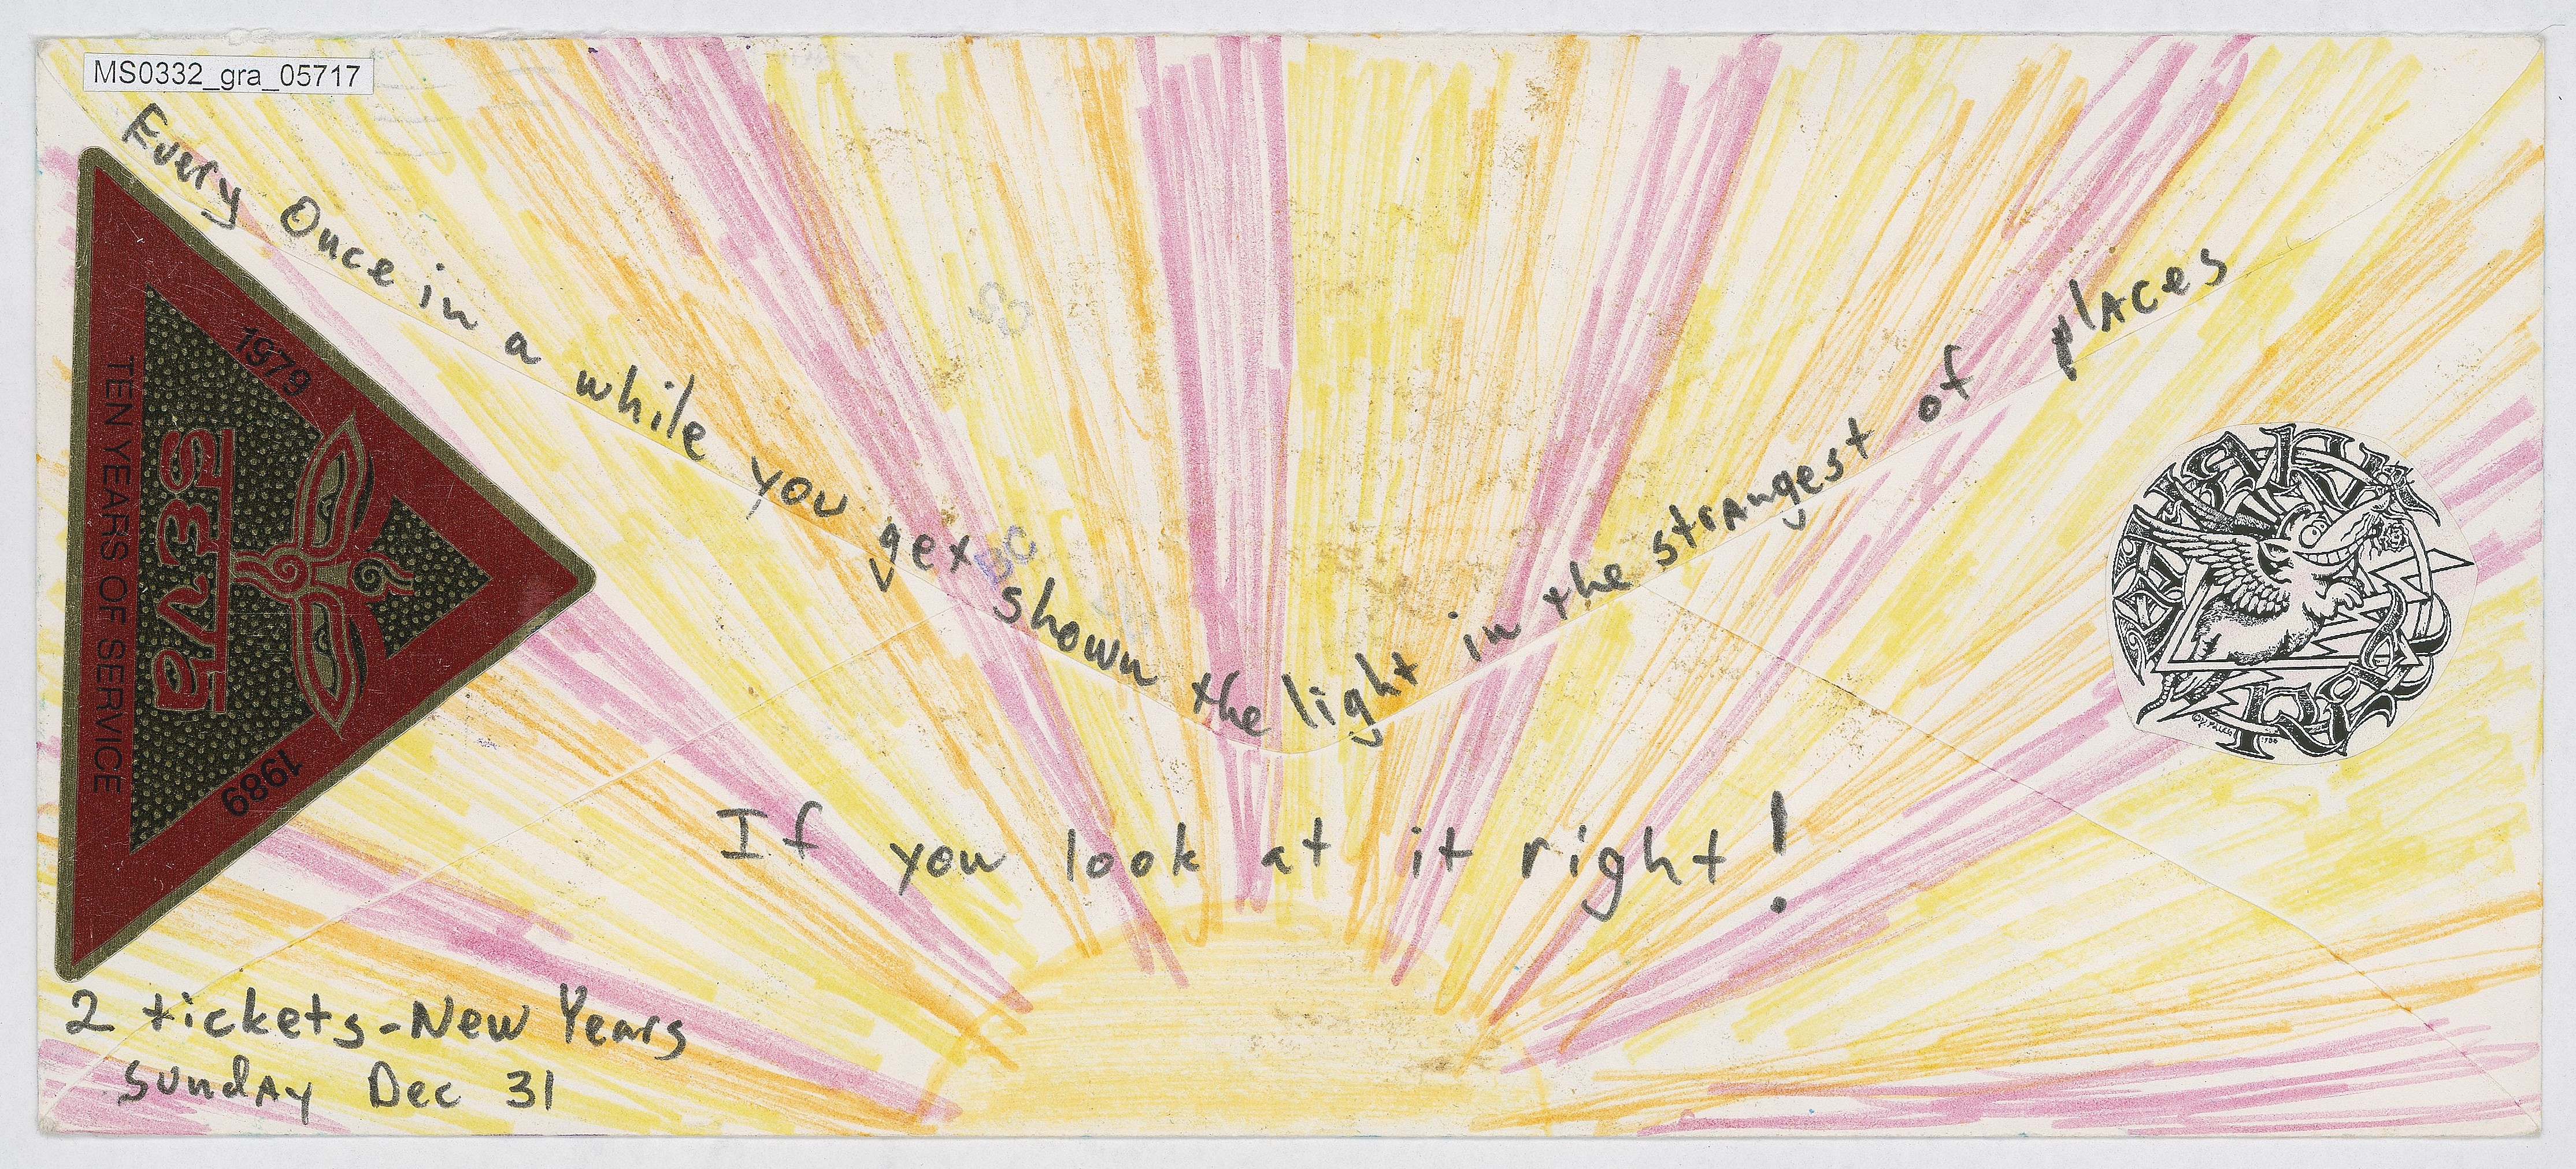 MS0332_gra_05717
Every Once in a while you get shown the light in the strangest of places
If you look at it right!
1979
SEVA
TEN YEARS OF SERVICE
1989
2 tickets-New Years
Sunday Dec 31